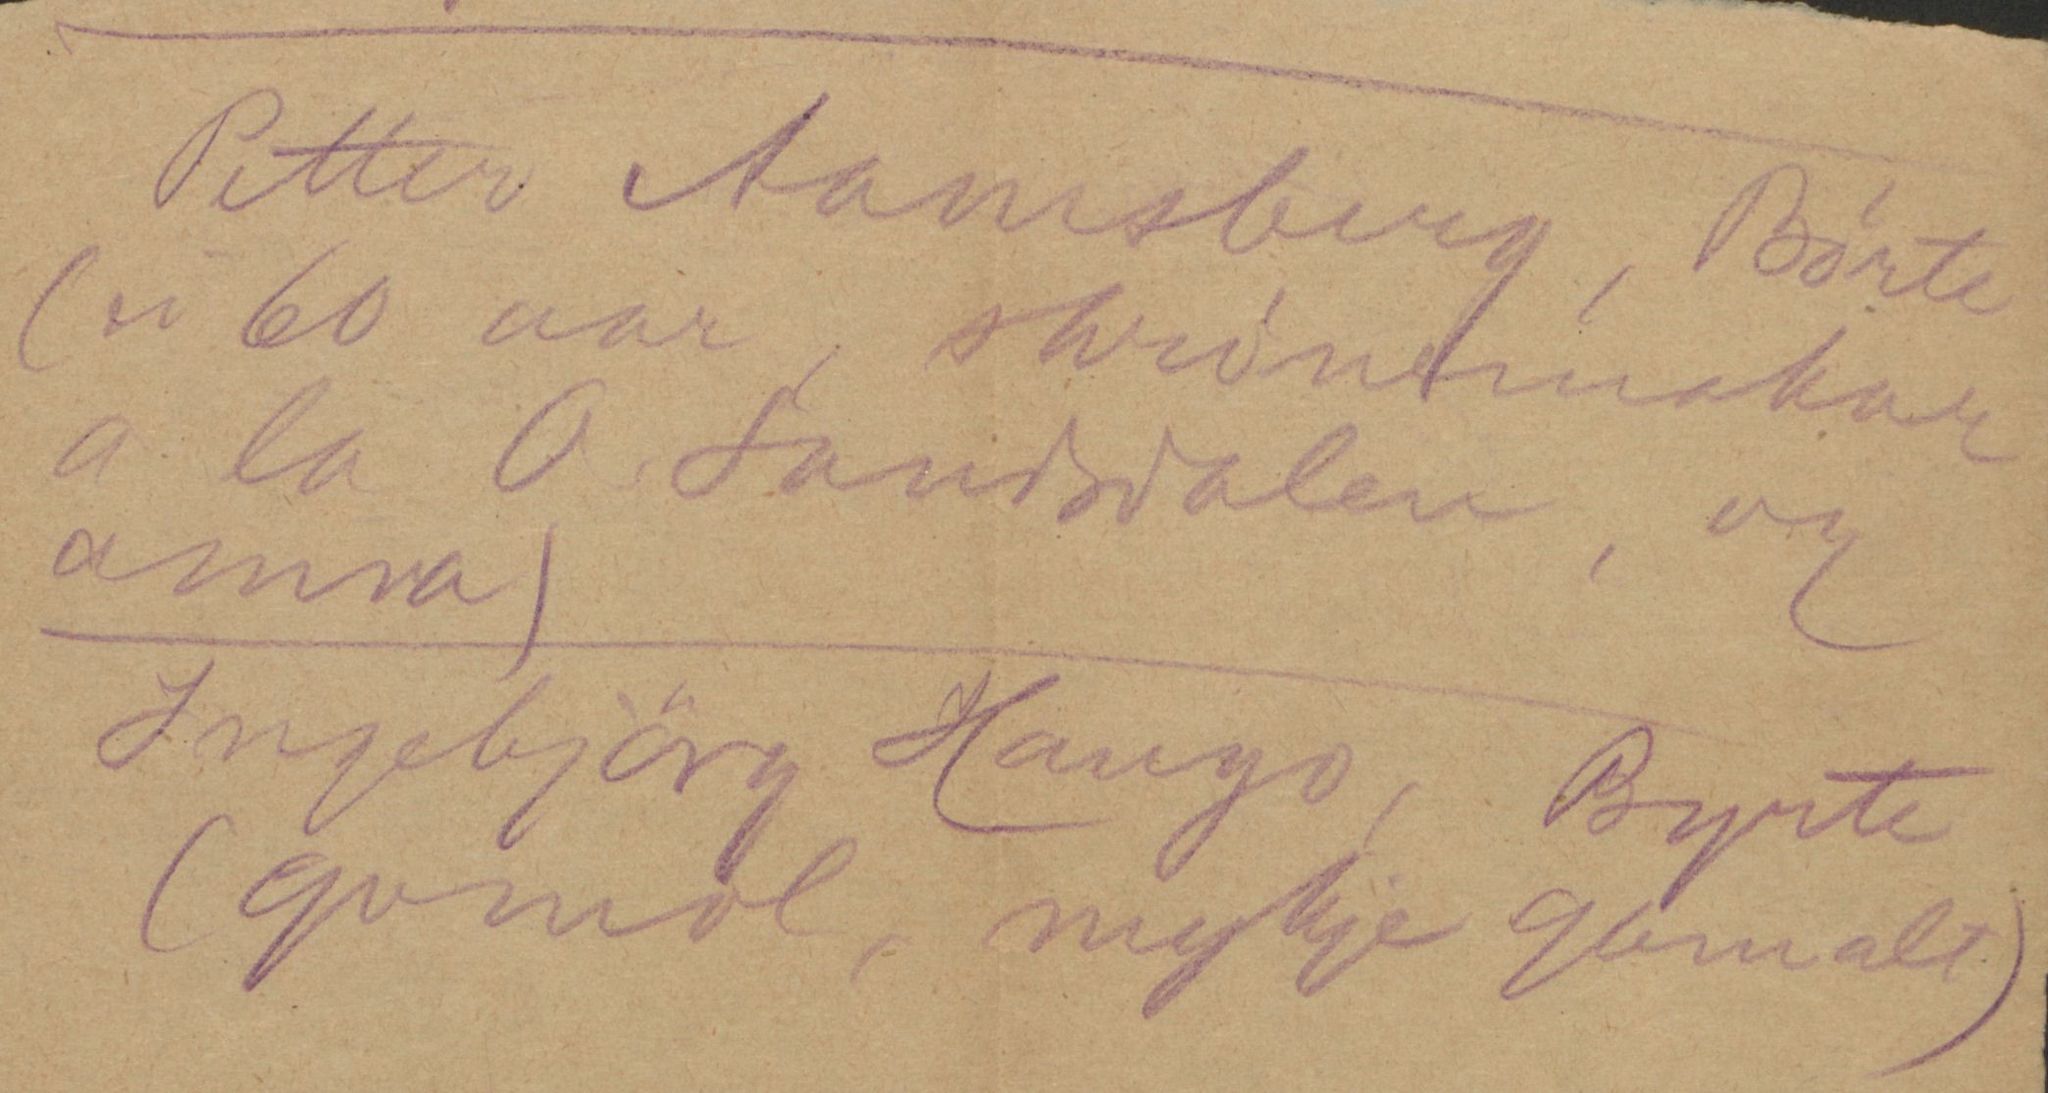 Petter Aamsberg, Börte
(vi 60 aar, skrönemakar
a la O. Sandsdalen, og
amra)
Ingebjörg Haugo, Byrte
(gomol, mykje gamalt)